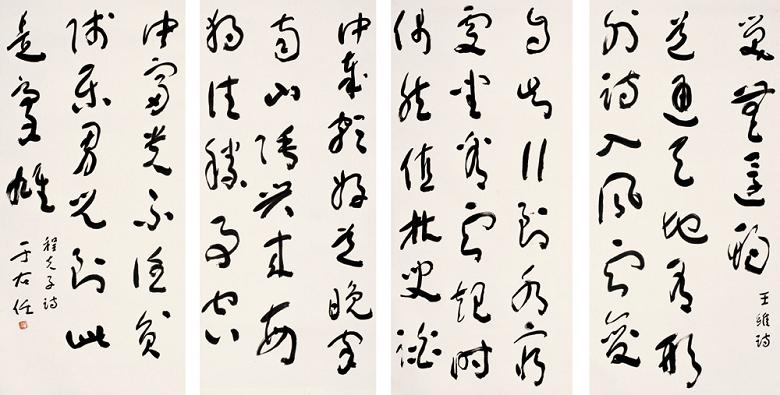 中歲頗好道晚家
南山陲興來每
獨往勝事空
自知行到水窮
處坐看雲起時
偶然值林叟談
笑無還期
王維詩
道通天地有形
外詩入風雲變
中富貴不淫貧
賤樂男兒到此
是豪雄
程夫子詩
于右任